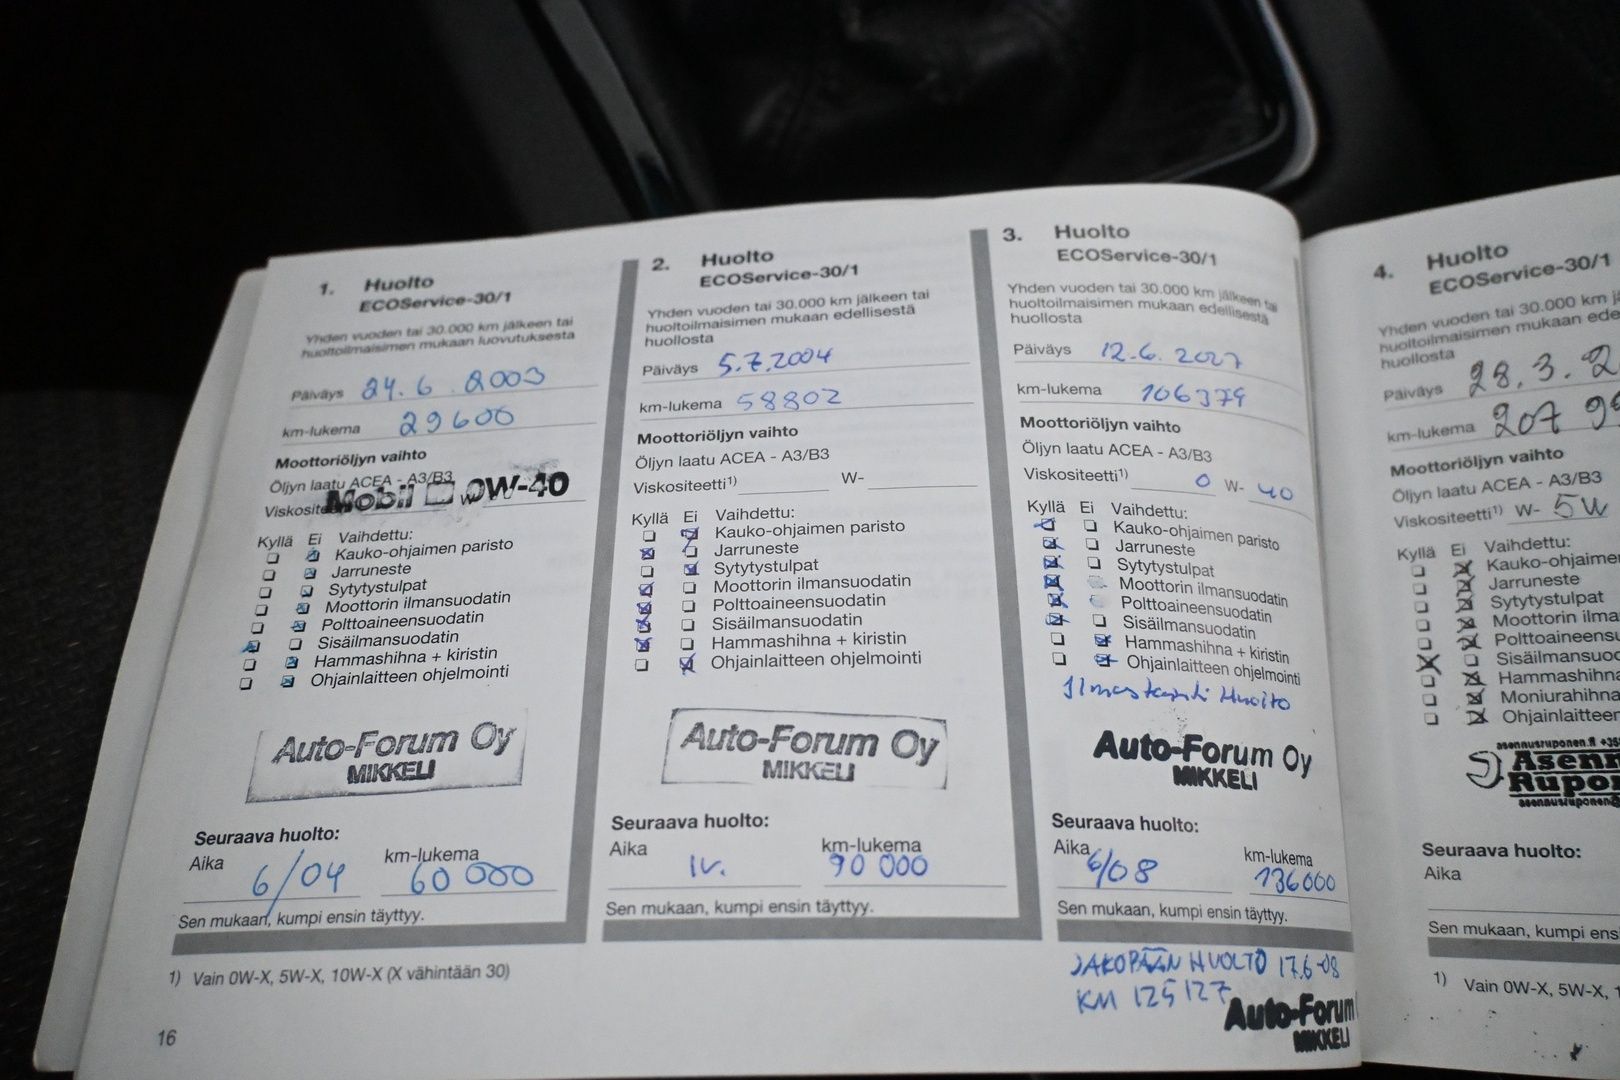 1. Huolto
ECOService-30/1
Yhden vuoden tai 30.000 km jälkeen tai
huoltoilmaisimen mukaan luovutuksesta
Päiväys 24.6.2003
km-lukema 29600
Moottoriöljyn vaihto
Öljyn laatu ACEA - A3/B3
Mobil 0W-40
W-
Kyllä Ei Vaihdettu:
Kauko-ohjaimen paristo
Jarruneste
Sytytystulpat
Moottorin ilmansuodatin
Polttoaineensuodatin
Sisäilmansuodatin
Hammashihna + kiristin
Ohjainlaitteen ohjelmointi
Auto-Forum Oy
MIKKELI
Seuraava huolto:
Aika 6/04 km-lukema 60 000
Sen mukaan, kumpi ensin täyttyy.
1) Vain 0W-X, 5W-X, 10W-X (X vähintään 30)
16
2. Huolto
ECOService-30/1
Yhden vuoden tai 30.000 km jälkeen tai
huoltoilmaisimen mukaan edellisestä
huollosta
Päiväys 5.7.2004
km-lukema 58802
Moottoriöljyn vaihto
Öljyn laatu ACEA - A3/B3
Viskositeetti1) W-
Kyllä Ei Vaihdettu:
Kauko-ohjaimen paristo
Jarruneste
Sytytystulpat
Moottorin ilmansuodatin
Polttoaineensuodatin
Sisäilmansuodatin
Hammashihna + kiristin
Ohjainlaitteen ohjelmointi
Auto-Forum Oy
MIKKELI
Seuraava huolto:
Aika 1v. km-lukema 90 000
Sen mukaan, kumpi ensin täyttyy.
3. Huolto
ECOService-30/1
Yhden vuoden tai 30.000 km jälkeen tai
huoltoilmaisimen mukaan edellisestä
huollosta
Päiväys 12.6.2007
km-lukema 106379
Moottoriöljyn vaihto
Öljyn laatu ACEA - A3/B3
Viskositeetti1) 0 W- 40
Kyllä Ei Vaihdettu:
Kauko-ohjaimen paristo
Jarruneste
Sytytystulpat
Moottorin ilmansuodatin
Polttoaineensuodatin
Sisäilmansuodatin
Hammashihna + kiristin
Ohjainlaitteen ohjelmointi
Ilmastointi Huolto
Auto-Forum Oy
MIKKELI
Seuraava huolto:
Aika 6/08 km-lukema 136000
Sen mukaan, kumpi ensin täyttyy.
JAKOPÄÄN HUOLTO 17.6-08
KM 125127
Auto-Forum
MIKKELI
4. Huolto
ECOService-30/1
Yhden vuoden tai 30.000 km
huoltoilmaisimen mukaan
huollosta
Päiväys 28.3.2
km-lukema 207 99
Moottoriöljyn vaihto
Öljyn laatu ACEA - A3/B3
Viskositeetti1) W- 5W
Kyllä Ei Vaihdettu:
Kauko-ohjaime
Jarruneste
Sytytystulpat
Moottorin ilma
Polttoaineensu
Sisäilmansuo
Hammashihna
Moniurahihna
Ohjainlaitteen
asennusruponen.fi +35
Asenn
Rupo
asennusruponen@
Seuraava huolto:
Aika
Sen mukaan, kumpi ens
1) Vain 0W-X, 5W-X, 1